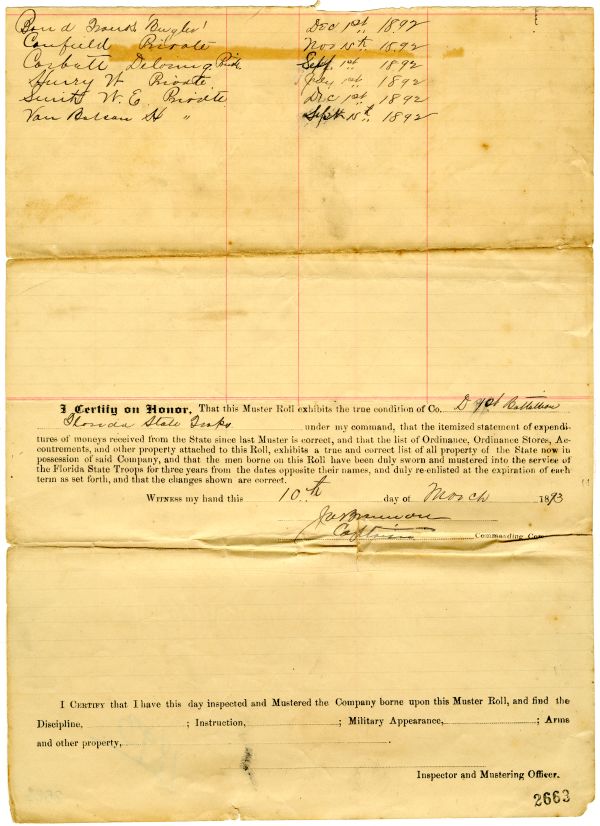 Bond Frank Bugler Dec 1st, 1892
Canfield Private Nov 15th, 1892
Corbett Private Sept 1st 1892
Hurry W Private July 1st, 1892
Smith W. E. Private Dec 1st 1892
Van Balsan H " Sept 15th, 1892
I Certify on Honor, That this Muster Roll exhibits the true condition of Co. D 1st Battallion
Florida State Troops under my command, that the itemized statement of expendi-
tures of moneys received from the State since last Muster is correct, and that the list of Ordinance, Ordinance Stores, Ac-
contrements, and other property attached to this Roll, exhibits a true and correct list of all property of the State now in
possession of said Company, and that the men borne on this Roll have been duly sworn and mustered into the service of
the Florida State Troops for three years from the dates opposite their names, and duly re-enlisted at the expiration of each
term as set forth, and that the changes shown are correct.
Witness my hand this 10th day of March 1893
Captain Commanding Com
I Certify that I have this day inspected and Mustered the Company borne upon this Muster Roll, and find the
Discipline, ; Instruction, ; Military Appearance, ; Arms
and other property,
Inspector and Mustering Officer.
2663